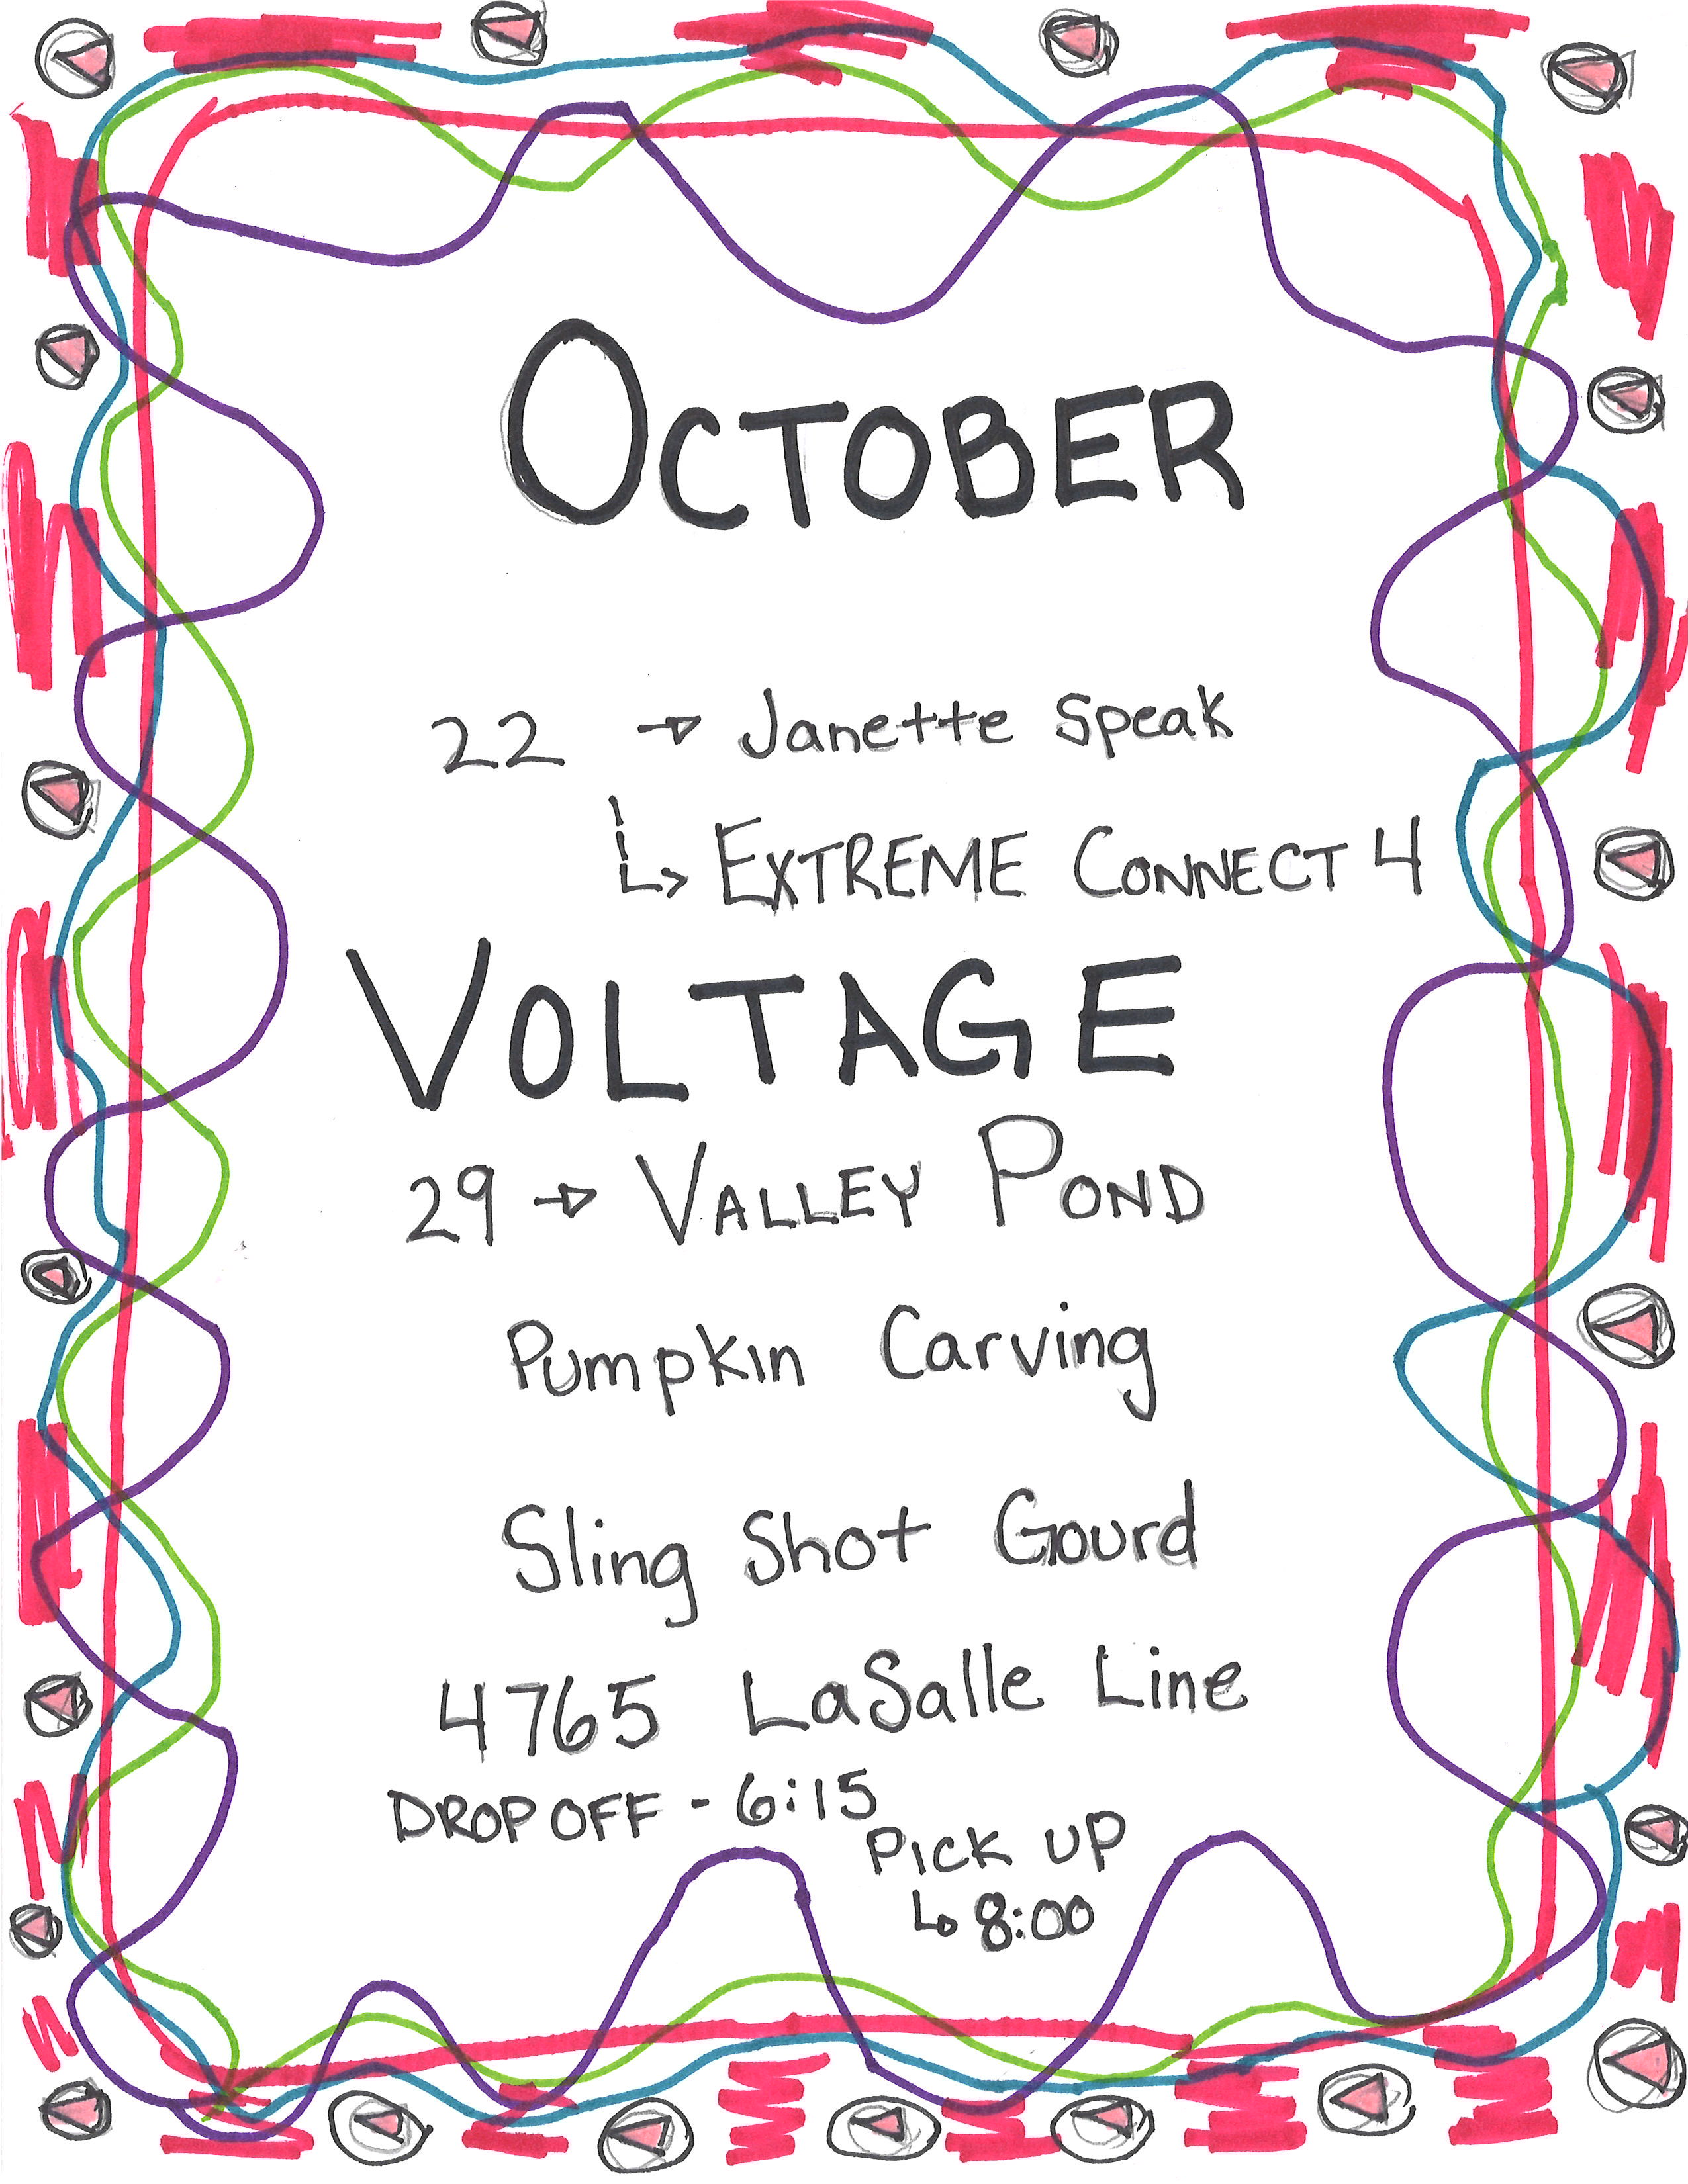 OCTOBER
22 → Janette Speak
↳ EXTREME CONNECT 4
VOLTAGE
29 → VALLEY POND
Pumpkin Carving
Sling Shot Gourd
4765 LaSalle Line
DROP OFF - 6:15
PICK UP
↳ 8:00